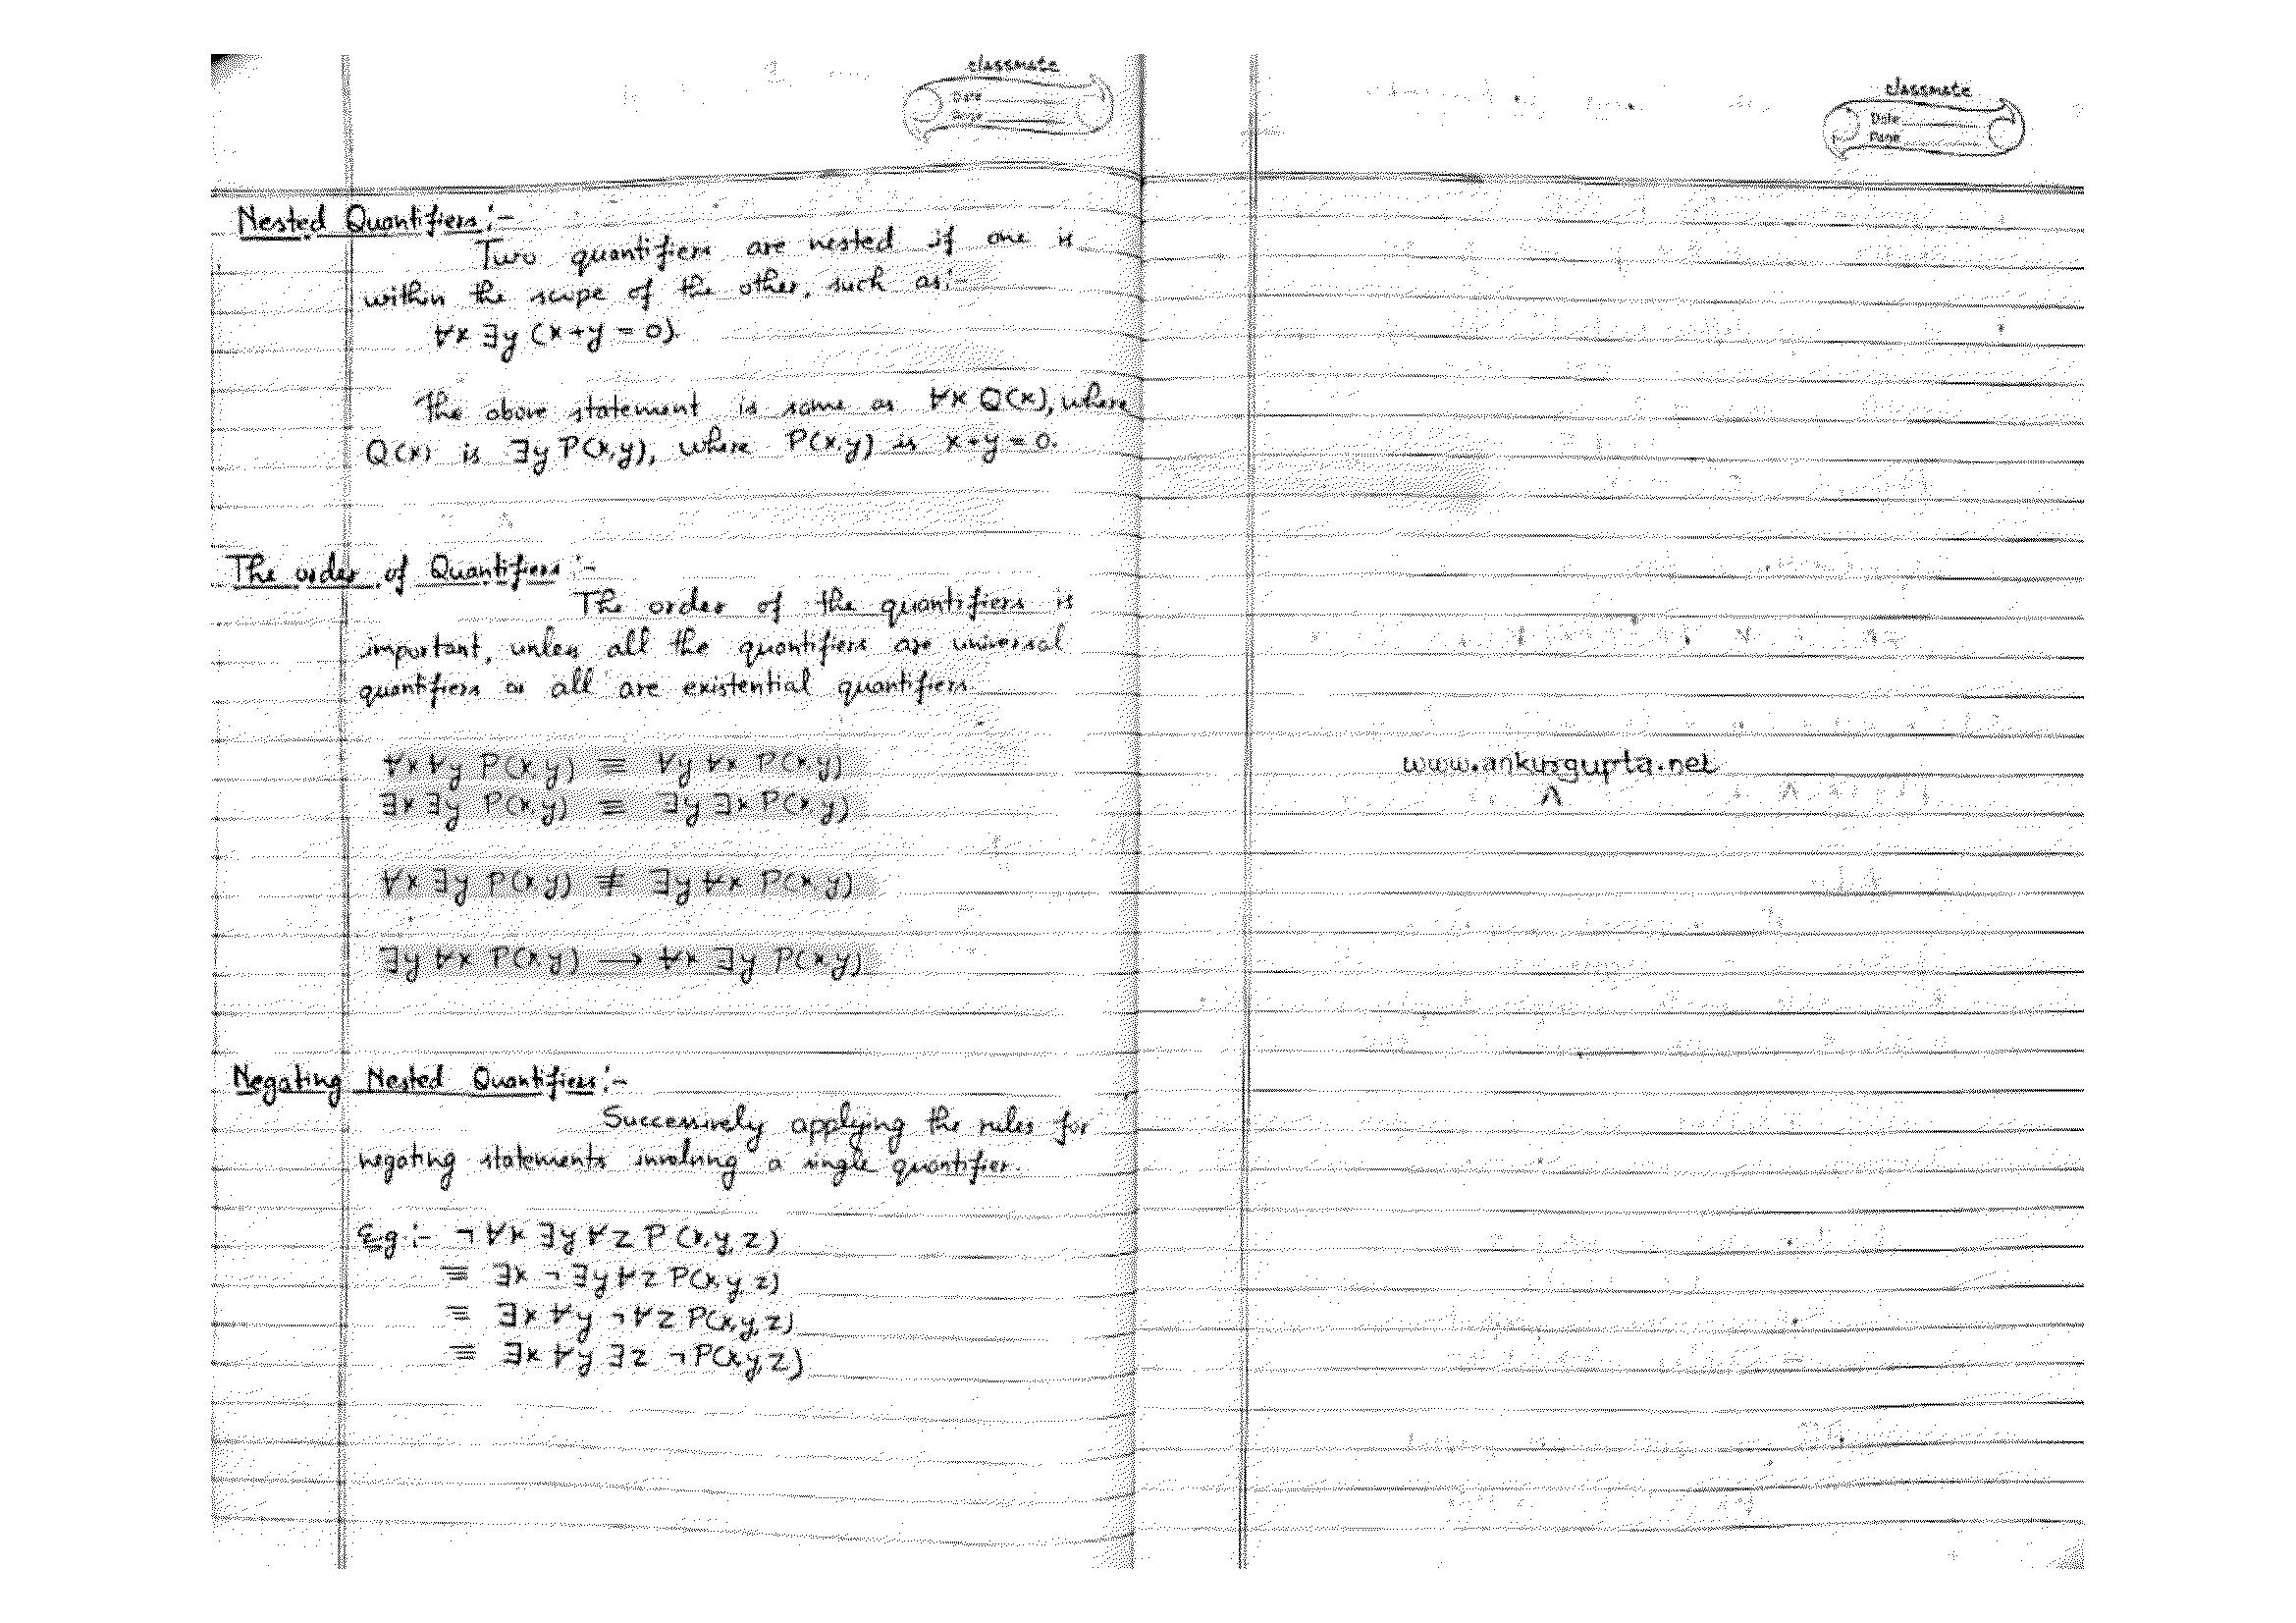 classmate
Date
Page
Nested Quantifiers :-
Two quantifiers are nested if one is
within the scope of the other, such as:-
∀x ∃y (x+y = 0).
The above statement is same as ∀x Q(x), where
Q(x) is ∃y P(x,y), where P(x,y) is x+y = 0.
The order of Quantifiers :-
The order of the quantifiers is
important, unless all the quantifiers are universal
quantifiers or all are existential quantifiers.
∀x ∀y P(x,y) ≡ ∀y ∀x P(x,y)
∃x ∃y P(x,y) ≡ ∃y ∃x P(x,y)
∀x ∃y P(x,y) ≢ ∃y ∀x P(x,y)
∃y ∀x P(x,y) → ∀x ∃y P(x,y)
Negating Nested Quantifiers :-
Successively applying the rules for
negating statements involving a single quantifier.
Eg :- ¬ ∀x ∃y ∀z P(x,y,z)
≡ ∃x ¬ ∃y ∀z P(x,y,z)
≡ ∃x ∀y ¬ ∀z P(x,y,z)
≡ ∃x ∀y ∃z ¬ P(x,y,z)
classmate
Date
Page
www.ankurgupta.net